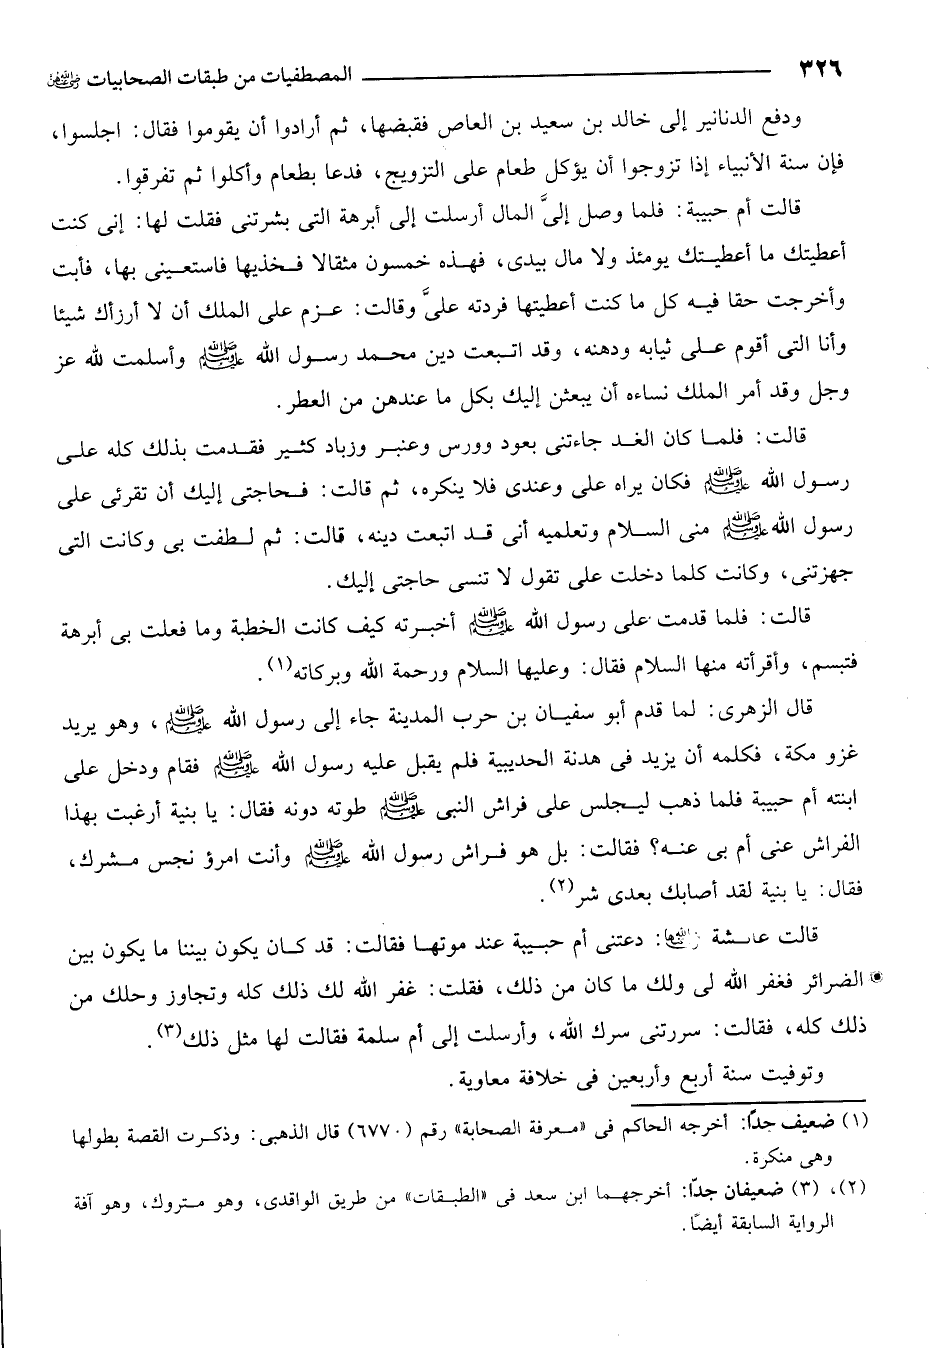 ٣٢٦ المصطفيات من طبقات الصحابيات رضي الله عنهن
ودفع الدنانير إلى خالد بن سعيد بن العاص فقبضها، ثم أرادوا أن يقوموا فقال: اجلسوا،
فإن سنة الأنبياء إذا تزوجوا أن يؤكل طعام على التزويج، فدعا بطعام وأكلوا ثم تفرقوا.
قالت أم حبيبة: فلما وصل إلىَّ المال أرسلت إلى أبرهة التى بشرتنى فقلت لها: إنى كنت
أعطيتك ما أعطيتك يومئذ ولا مال بيدى، فهذه خمسون مثقالا فخذيها فاستعينى بها، فأبت
وأخرجت حقا فيه كل ما كنت أعطيتها فردته علىَّ وقالت: عزم على الملك أن لا أرزأك شيئا
وأنا التى أقوم على ثيابه ودهنه، وقد اتبعت دين محمد رسول الله ﷺ وأسلمت لله عز
وجل وقد أمر الملك نساءه أن يبعثن إليك بكل ما عندهن من العطر.
قالت: فلما كان الغد جاءتنى بعود وورس وعنبر وزباد كثير فقدمت بذلك كله على
رسول الله ﷺ فكان يراه على وعندى فلا ينكره، ثم قالت: فحاجتى إليك أن تقرئى على
رسول الله ﷺ منى السلام وتعلميه أنى قد اتبعت دينه، قالت: ثم لطفت بى وكانت التى
جهزتنى، وكانت كلما دخلت على تقول لا تنسى حاجتى إليك.
قالت: فلما قدمت على رسول الله ﷺ أخبرته كيف كانت الخطبة وما فعلت بى أبرهة
فتبسم، وأقرأته منها السلام فقال: وعليها السلام ورحمة الله وبركاته(١).
قال الزهرى: لما قدم أبو سفيان بن حرب المدينة جاء إلى رسول الله ﷺ، وهو يريد
غزو مكة، فكلمه أن يزيد فى هدنة الحديبية فلم يقبل عليه رسول الله ﷺ فقام ودخل على
ابنته أم حبيبة فلما ذهب ليجلس على فراش النبى ﷺ طوته دونه فقال: يا بنية أرغبت بهذا
الفراش عنى أم بى عنه؟ فقالت: بل هو فراش رسول الله ﷺ وأنت امرؤ نجس مشرك،
فقال: يا بنية لقد أصابك بعدى شر(٢).
قالت عائشة رضي الله عنها: دعتنى أم حبيبة عند موتها فقالت: قد كان يكون بيننا ما يكون بين
الضرائر فغفر الله لى ولك ما كان من ذلك، فقلت: غفر الله لك ذلك كله وتجاوز وحلك من
ذلك كله، فقالت: سررتنى سرك الله، وأرسلت إلى أم سلمة فقالت لها مثل ذلك(٣).
وتوفيت سنة أربع وأربعين فى خلافة معاوية.
(١) ضعيف جدًا: أخرجه الحاكم فى «معرفة الصحابة» رقم (٦٧٧٠) قال الذهبى: وذكرت القصة بطولها
وهى منكرة.
(٢)، (٣) ضعيفان جدًا: أخرجهما ابن سعد فى «الطبقات» من طريق الواقدى، وهو متروك، وهو آفة
الرواية السابقة أيضًا.